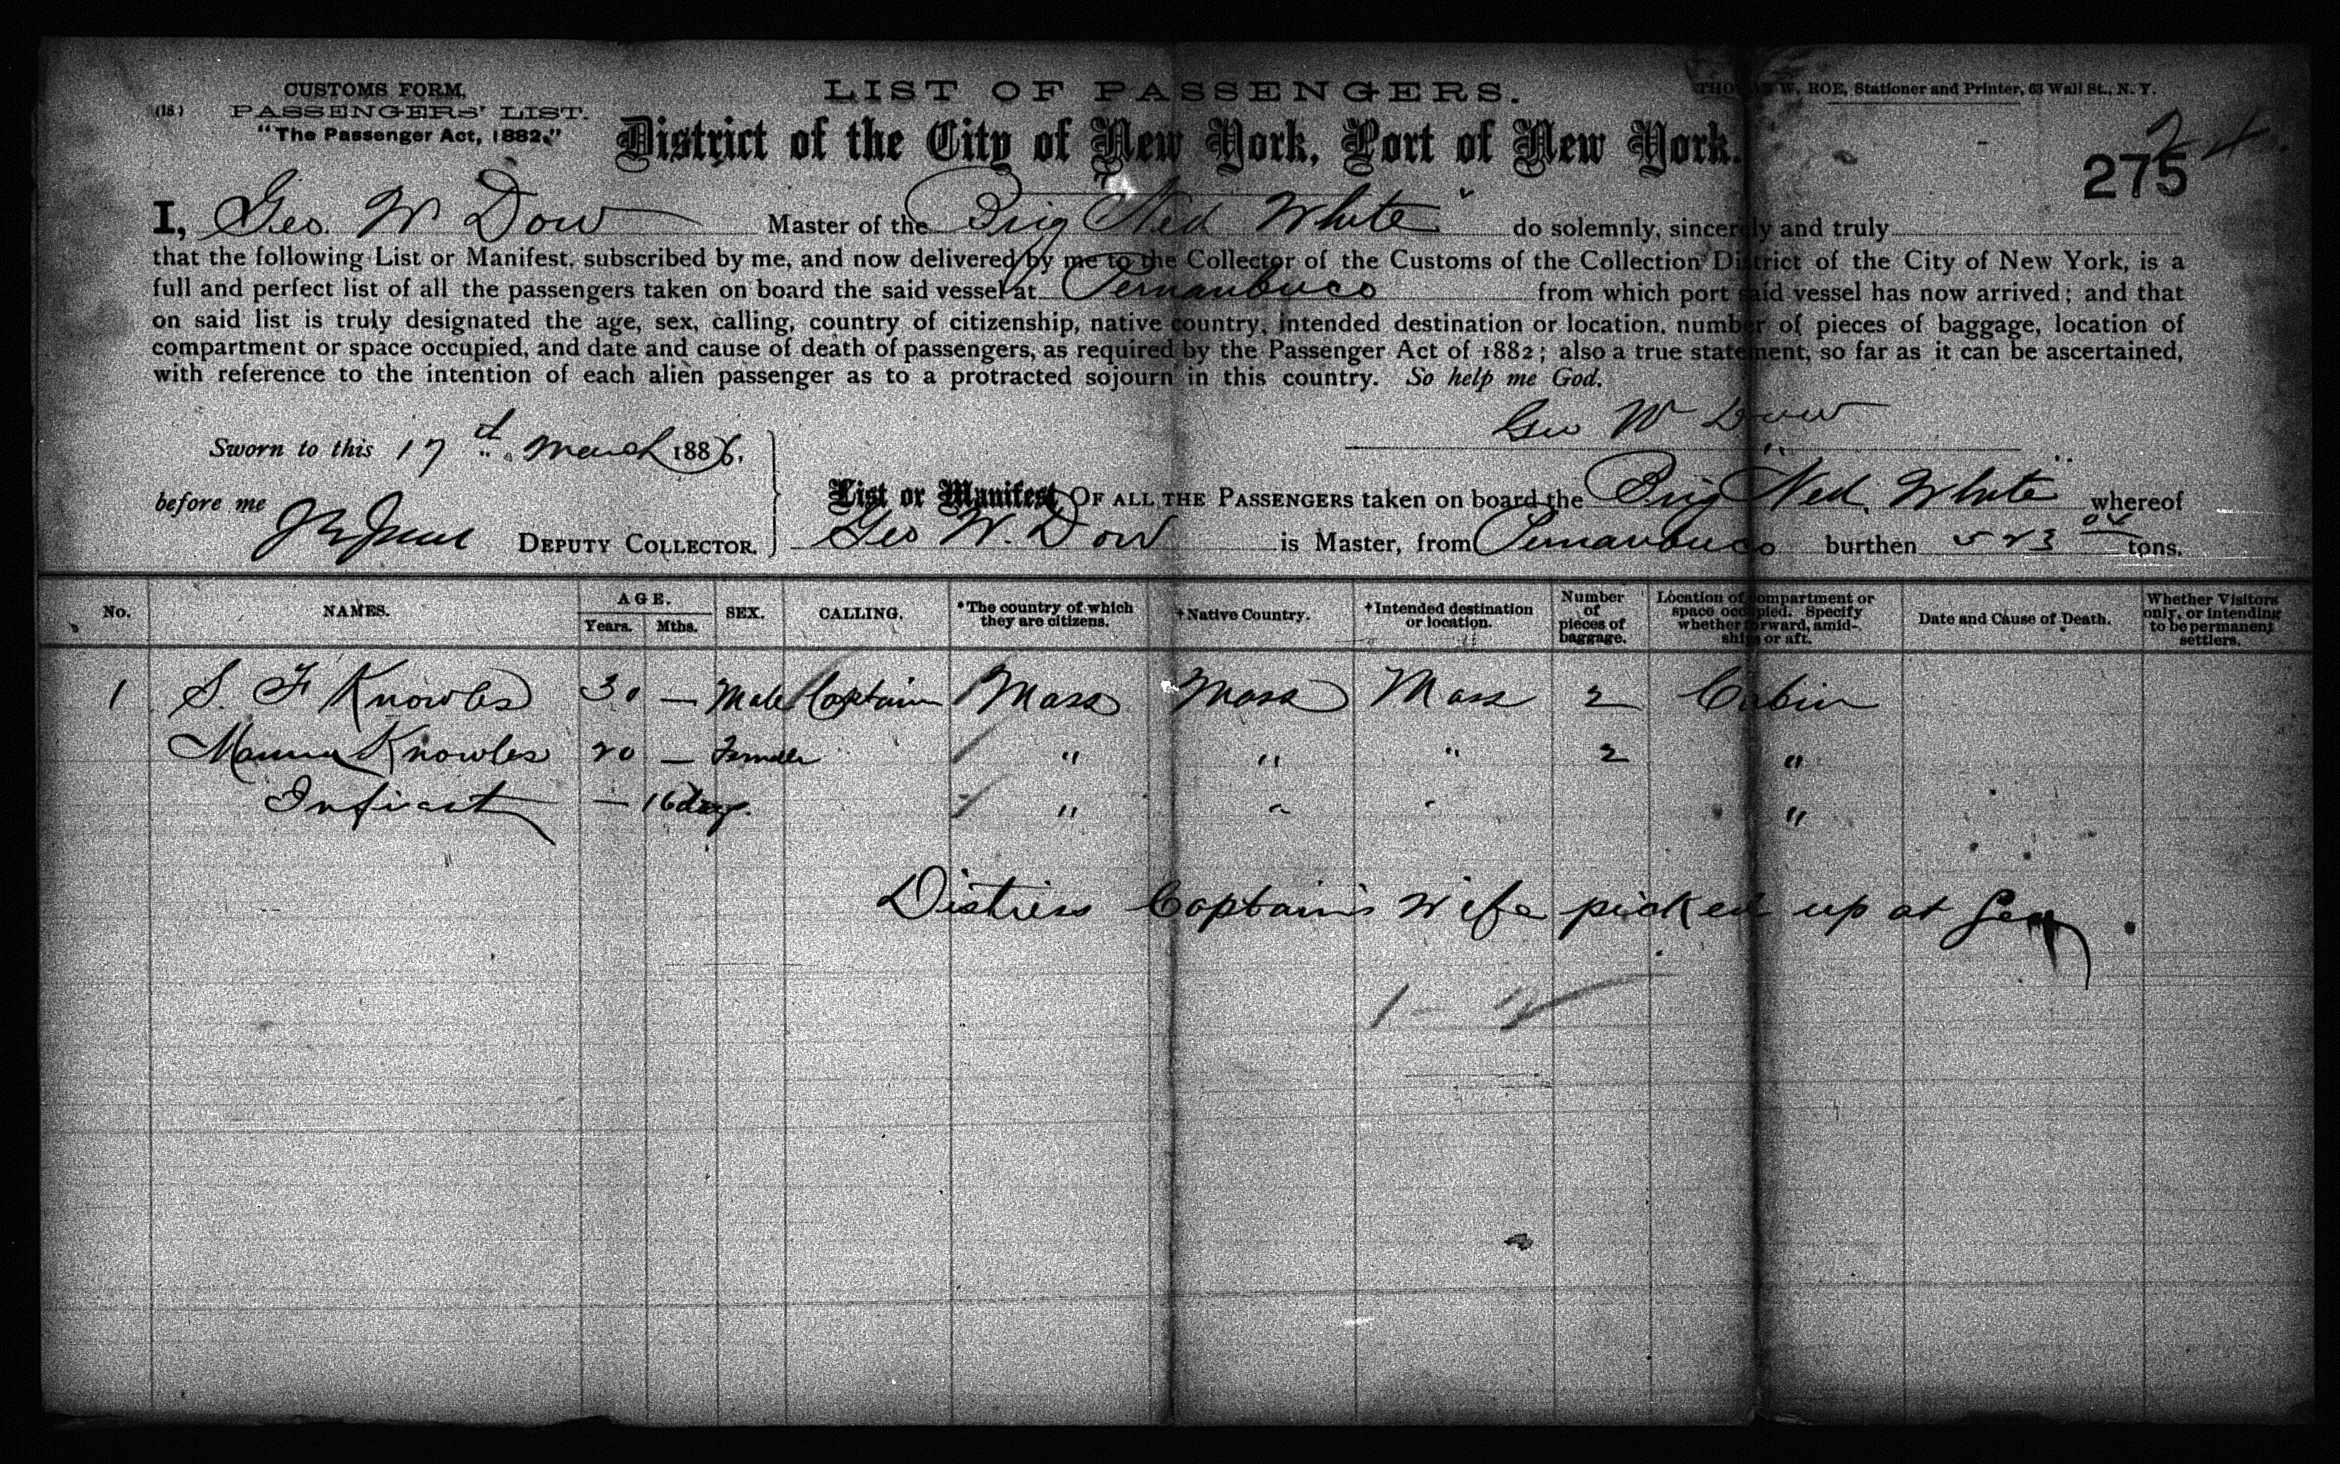 CUSTOMS FORM.
(18.) PASSENGERS' LIST.
"The Passenger Act, 1882."
LIST OF PASSENGERS.
W. ROE, Stationer and Printer, 63 Wall St., N. Y.
District of the City of New York, Port of New York.
24.
275
I, Geo. W Dow Master of the Brig Ned White" do solemnly, sincerely and truly
that the following List or Manifest, subscribed by me, and now delivered by me to the Collector of the Customs of the Collection District of the City of New York, is a
full and perfect list of all the passengers taken on board the said vessel at Pernanbuco from which port said vessel has now arrived; and that
on said list is truly designated the age, sex, calling, country of citizenship, native country, intended destination or location, number of pieces of baggage, location of
compartment or space occupied, and date and cause of death of passengers, as required by the Passenger Act of 1882; also a true statement, so far as it can be ascertained,
with reference to the intention of each alien passenger as to a protracted sojourn in this country. So help me God.
Geo W Dow
Sworn to this 17th March 1886.
before me DEPUTY COLLECTOR.
List or Manifest OF ALL THE PASSENGERS taken on board the Brig Ned. White whereof
Geo W. Dow is Master, from Pernanbuco burthen 523 04 tons.
No. NAMES. AGE. Years. Mths. SEX. CALLING. *The country of which they are citizens. †Native Country. †Intended destination or location. Number of pieces of baggage. Location of compartment or space occupied. Specify whether forward, amidships or aft. Date and Cause of Death. Whether Visitors only, or intending to be permanent settlers.
1 S. F Knowles 30 — Male Captain Mass Mass Mass 2 Cabin
Knowles 20 — Female " " " 2 "
Infant — 16 days. " " " "
Distress Captain's wife picked up at Sea